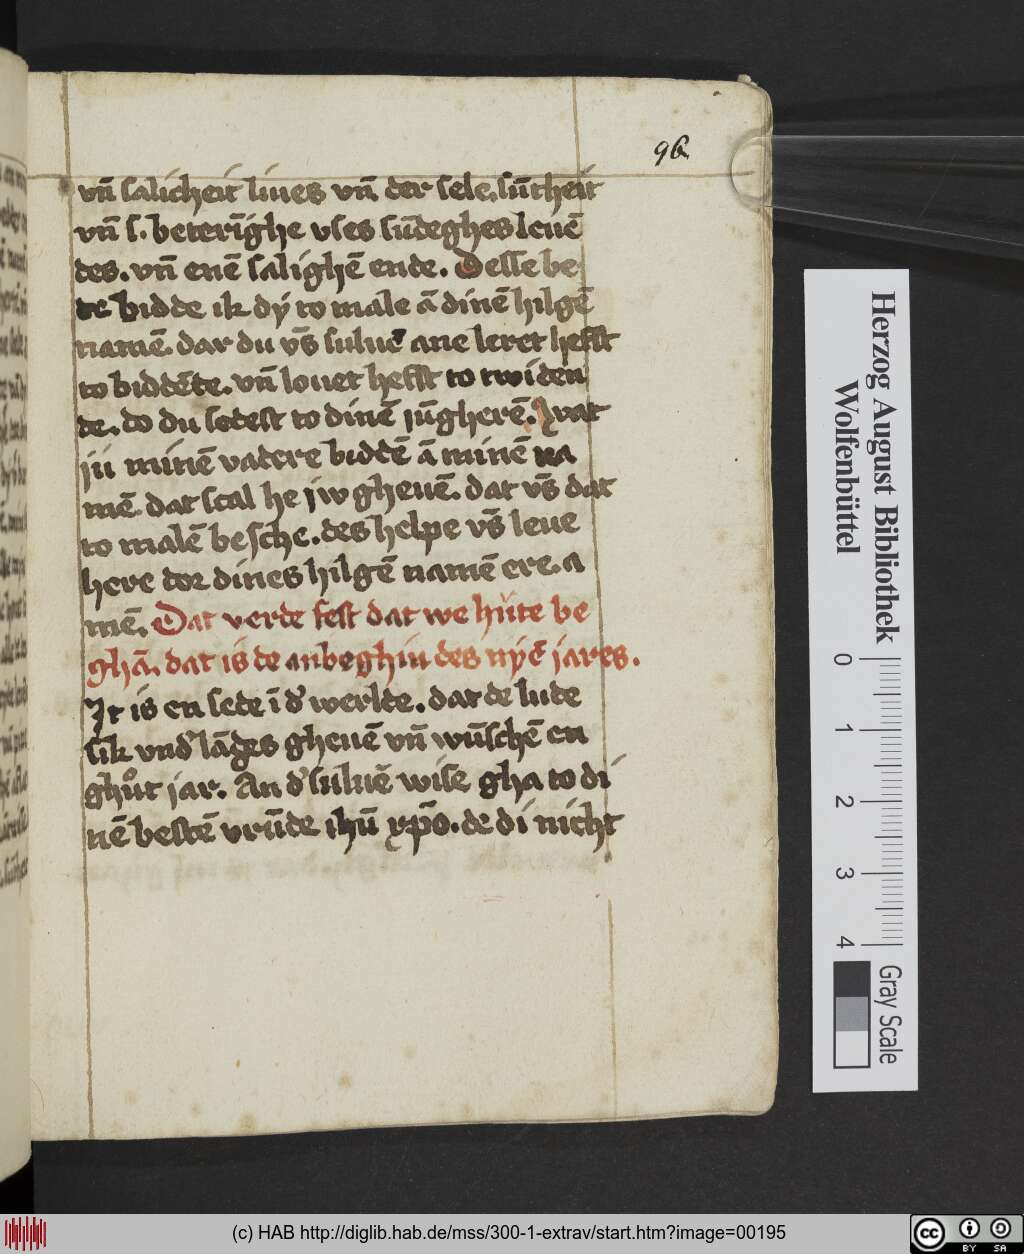 96
vn̄ salicheit liues vn̄ der sele. sūtheit
vn̄ s. beterīghe vses sūdeghes leuē
des. vn̄ enē salighē ende. Desse be
de bidde ik dÿ to male ā dinē hilgē
namē. dar du vs̄ suluē ane leret hefst
to biddēde. vn̄ louet hefst to twiden
de. do du sedest to dinē jūgherē. Wat
jii minē vadere biddē ā minē na
mē. dat scal he jw gheuē. dat vs̄ dat
to malē besche. des helpe vs̄ leue
here dor dines hilgē namē ere. a
mē. Dat verde fest dat we hüte be
ghā. dat is de anbeghin des nÿē jares.
It is en sede ī d' werlde. dat de lude
sik vnd' lāges gheuē vn̄ wūschē en
ghůt jar. An d' suluē wise gha to di
nē bestē vrūde ihū xp̄o. de di nicht
Herzog August Bibliothek
Wolfenbüttel
0 1 2 3 4
Gray Scale
(c) HAB http://diglib.hab.de/mss/300-1-extrav/start.htm?image=00195
cc BY SA